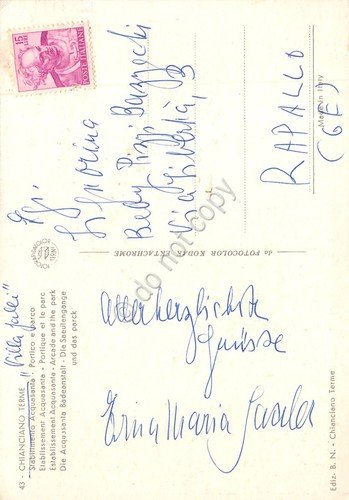 43 - CHIANCIANO TERME "Villa
Stabilimento Acquasanta - Portico e parco
Etablissement Acquasanta - Portique et le parc
Establissement Acquasanta - Arcade and the park
Die Acquasanta Badeanstalt - Die Saeulengange
und das parck
Allerherzlichste
Grüsse
Erna Maria
Ediz. B. N. - Chianciano Terme
da FOTOCOLOR KODAK EKTACHROME
15
LIRE
POSTE ITALIANE
Signorina
Beby Pizzi
Via Libertà,
RAPALLO
(GE)
Made in Italy
do not copy